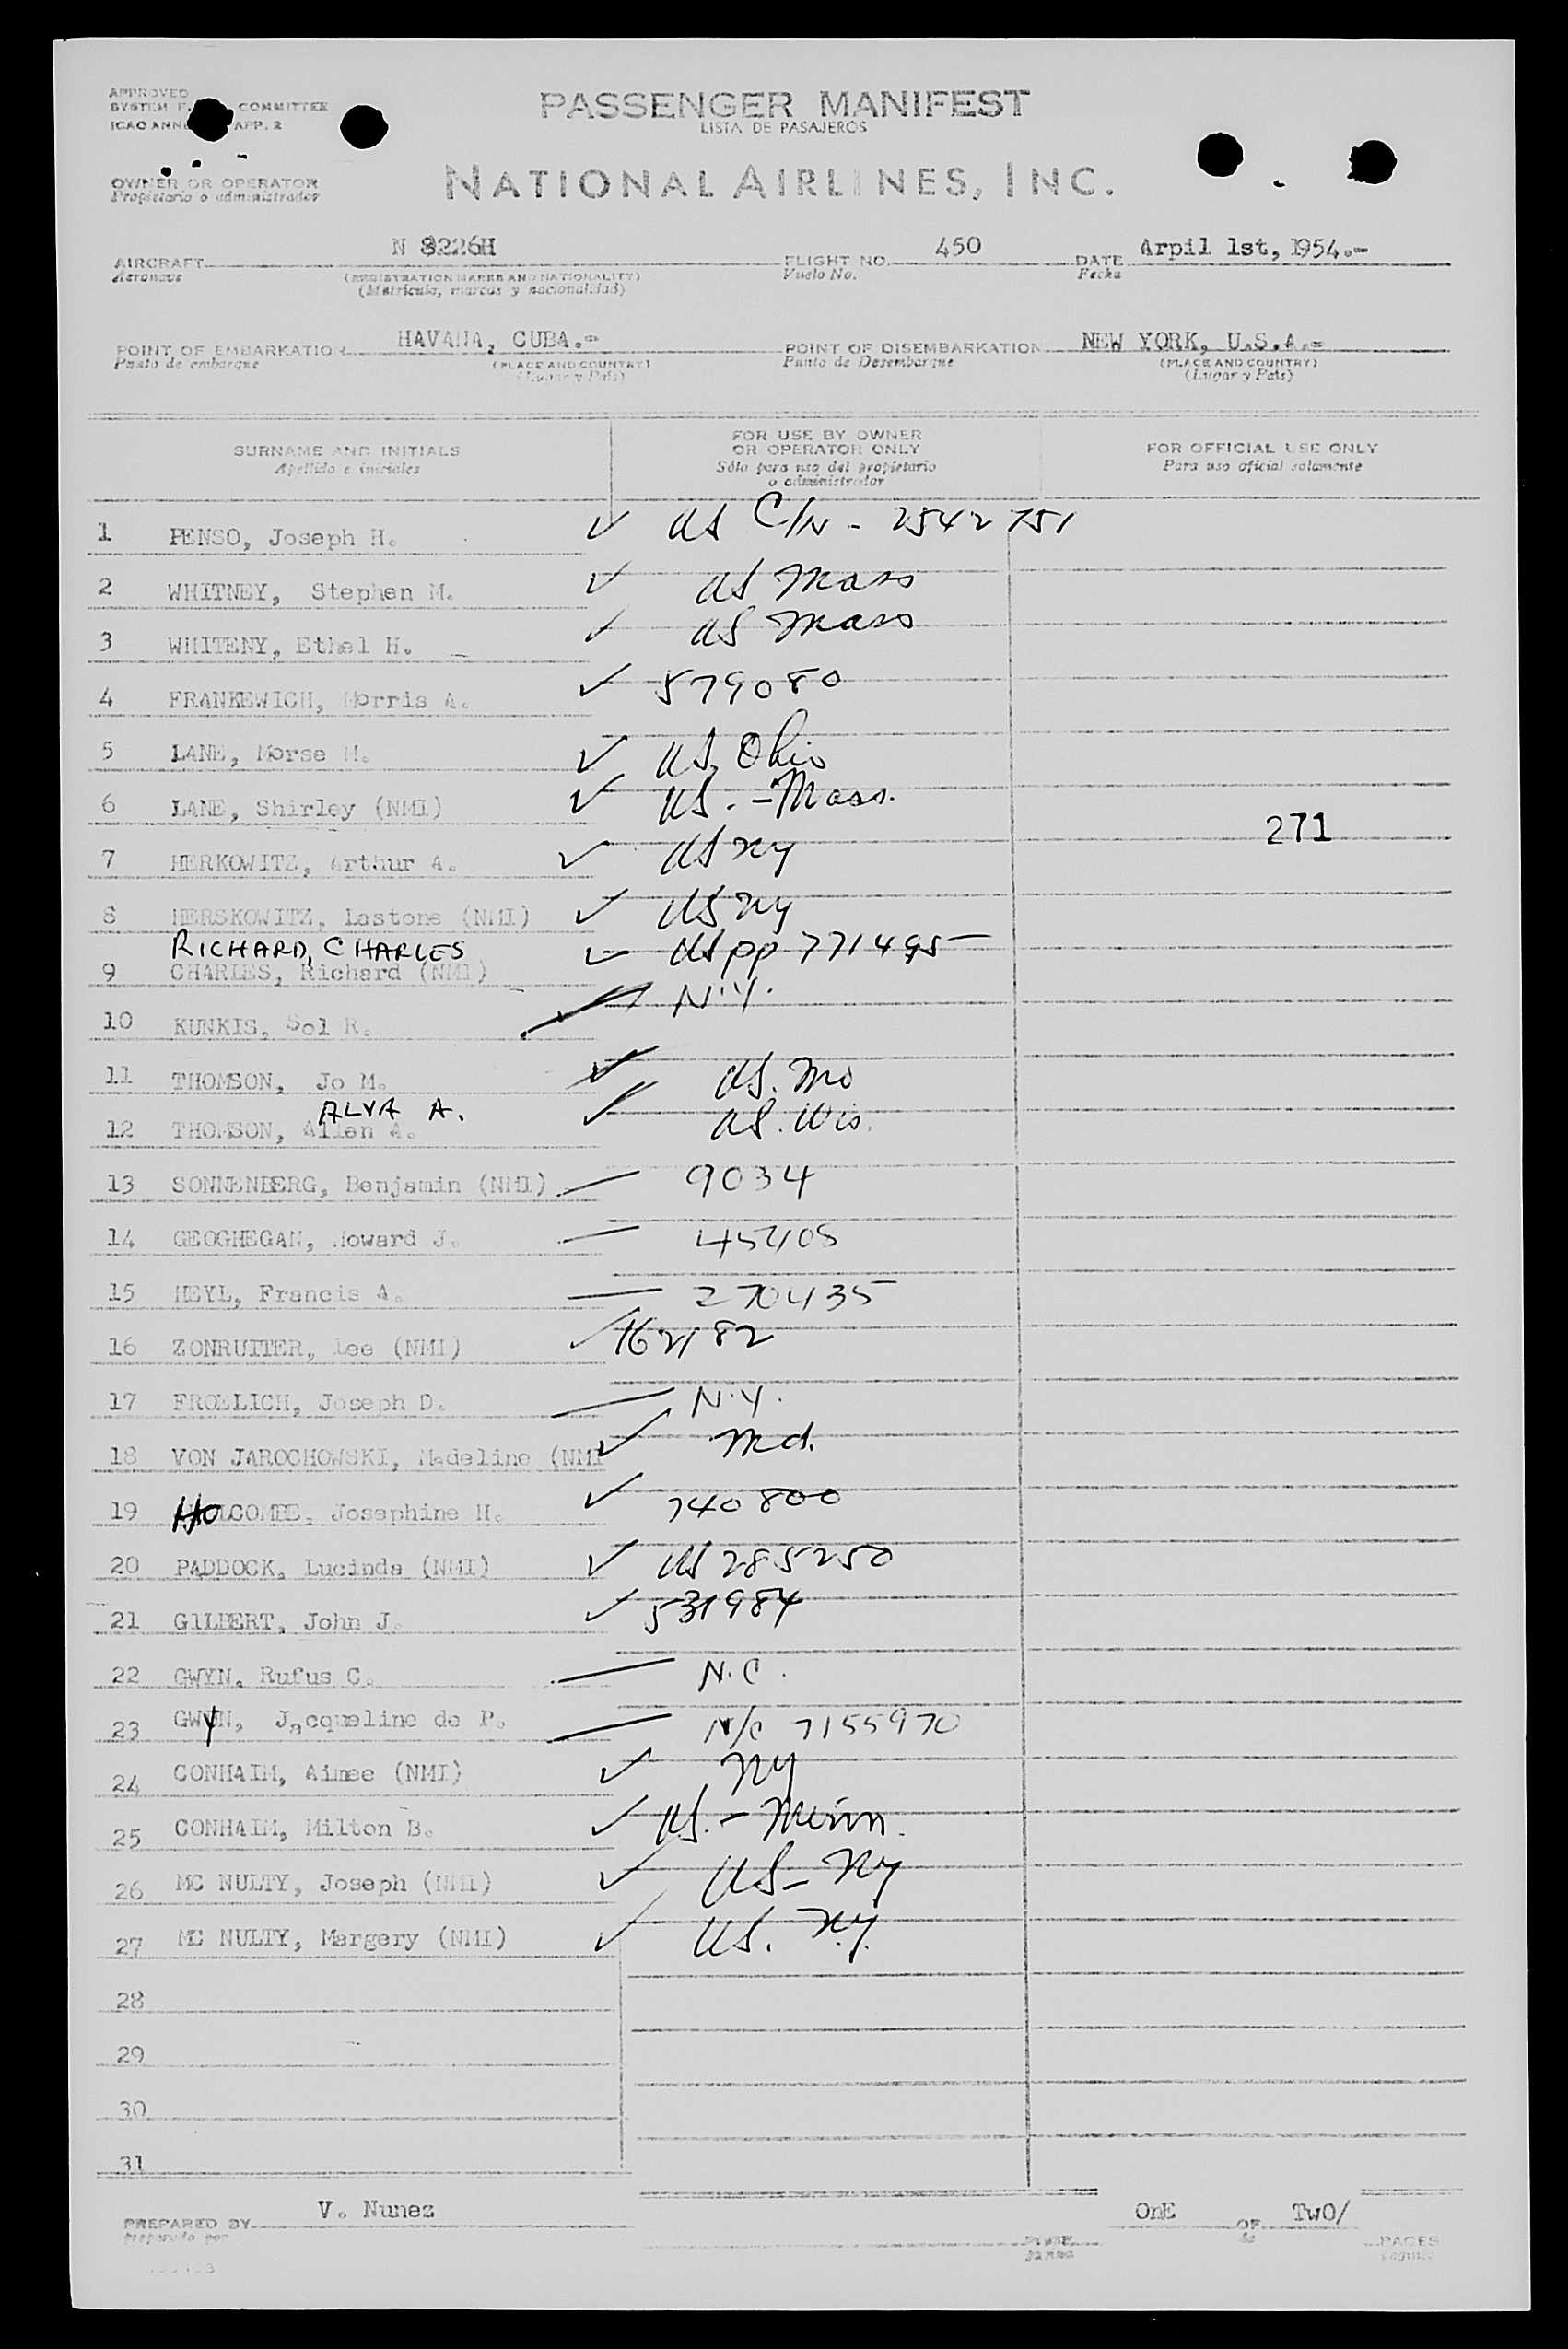 APPROVED
SYSTEM F. COMMITTEE
ICAO ANNE APP. 2
PASSENGER MANIFEST
LISTA DE PASAJEROS
OWNER OR OPERATOR
Propietario o administrador
NATIONAL AIRLINES, INC.
AIRCRAFT N 8226H FLIGHT NO. 450 DATE Arpil 1st, 1954.-
Aeronave (REGISTRATION MARKS AND NATIONALITY) Vuelo No. Fecha
(Matricula, marcas y nacionalidad)
POINT OF EMBARKATION HAVANA, CUBA.- POINT OF DISEMBARKATION NEW YORK, U.S.A.-
Punto de embarque (PLACE AND COUNTRY) Punto de Desembarque (PLACE AND COUNTRY)
(Lugar y Pais) (Lugar y Pais)
SURNAME AND INITIALS
Apellido e iniciales
FOR USE BY OWNER
OR OPERATOR ONLY
Sólo para uso del propietario
o administrador
FOR OFFICIAL USE ONLY
Para uso oficial solamente
1 PENSO, Joseph H. ✓ US C/N - 2542751
2 WHITNEY, Stephen M. ✓ US Mass
3 WHITENY, Ethel H. ✓ US Mass
4 FRANKEWICH, Morris A. ✓ 579080
5 LANE, Morse M. ✓ US, Ohio
6 LANE, Shirley (NMI) ✓ US. - Mass.
271
7 HERKOWITZ, Arthur A. ✓ US NY
8 HERSKOWITZ, Lastone (NMI) ✓ US NY
RICHARD, CHARLES
9 CHARLES, Richard (NMI) ✓ US pp 771495
10 KUNKIS, Sol R. ✓ N.Y.
11 THOMSON, Jo M. ✓ US. Mo
ALVA A.
12 THOMSON, Allen A. ✓ US. Wis.
13 SONNENBERG, Benjamin (NMI) 9034
14 GEOGHEGAN, Howard J. 45405
15 HEYL, Francis A. 270435
16 ZONRUITER, Lee (NMI) ✓ 162182
17 FROELICH, Joseph D. N.Y.
18 VON JAROCHOWSKI, Madeline (NMI ✓ Md.
19 HOLCOMBE, Josephine H. ✓ 740800
20 PADDOCK, Lucinda (NMI) ✓ US 285250
21 GILBERT, John J. ✓ 531984
22 GWYN, Rufus C. N.C.
23 GWYN, Jacqueline de P. N/C 7155970
24 CONHAIM, Aimee (NMI) ✓ NY
25 CONHAIM, Milton B. ✓ US. - Minn.
26 MC NULTY, Joseph (NMI) ✓ US - NY
27 MC NULTY, Margery (NMI) ✓ US. N.Y.
28
29
30
31
PREPARED BY V. Nunez OnE OF TwO/ PAGES
Preparado por de